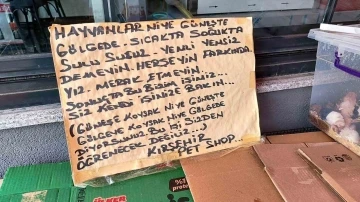 HAYVANLAR NİYE GÜNEŞTE
GÖLGEDE. SICAKTA SOĞUKTA
SULU SUSUZ. YEMLİ YEMSİZ
DEMEYİN. HERŞEYİN FARKINDA
YIZ. MERAK ETMEYİN...
SONUÇTA BU BİZİM İŞİNİZ...
SİZ KENDİ İŞİNİZE BAKIN...
(GÜNEŞE KOYSAK NİYE GÜNEŞTE
GÖLGEYE KOYSAK NİYE GÖLGEDE
DİYORSUNUZ. BU İŞİ SİZDEN
ÖĞRENECEK DEĞİLİZ...)
KIRŞEHİR
PET SHOP...
ÜLKER
%3
prote